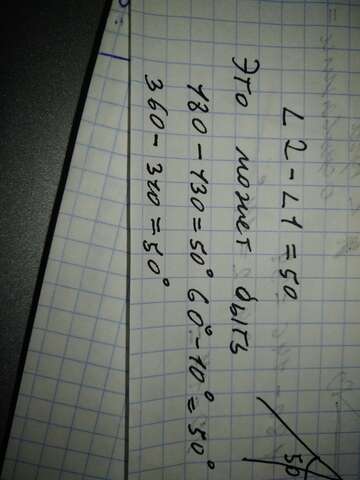 ∠2-∠1=50
Это может быть
180-130=50° 60°-10°=50°
360-310=50°
50